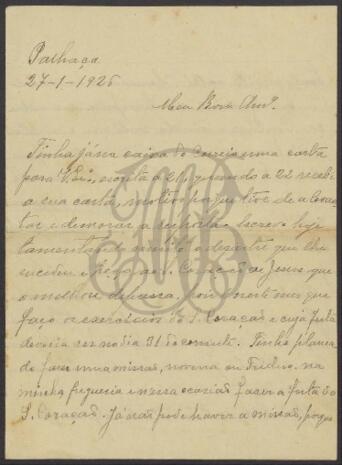 Palhaça
27-1-1926
Meu Bom Amº.
Tinha já na caixa do correio uma carta
para V. escrita a 21, quando a 22 recebi
a sua carta, motivo porque tive de a levan
tar e demorar a resposta. Escrevo hoje
lamentando muito o desastre que lhe
sucedeu e peço ao S. Coração de Jesus que
o melhore depressa. foi neste mez que
faço os exercicios do S. Coração e cuja festa
deveria ser no dia 31 do corrente. Tinha planea
do fazer umas missas, novena ou Triduo, na
minha freguesia e nessa ocasião fazer a festa do
S. Coração. Já não pode haver a missão, porque